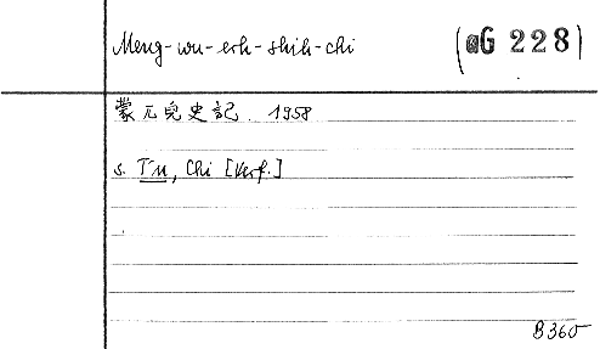 Meng-wu-erh-shih-chi (G 228)
蒙兀兒史記. 1958
s. Tu, Chi [Verf.]
B 365